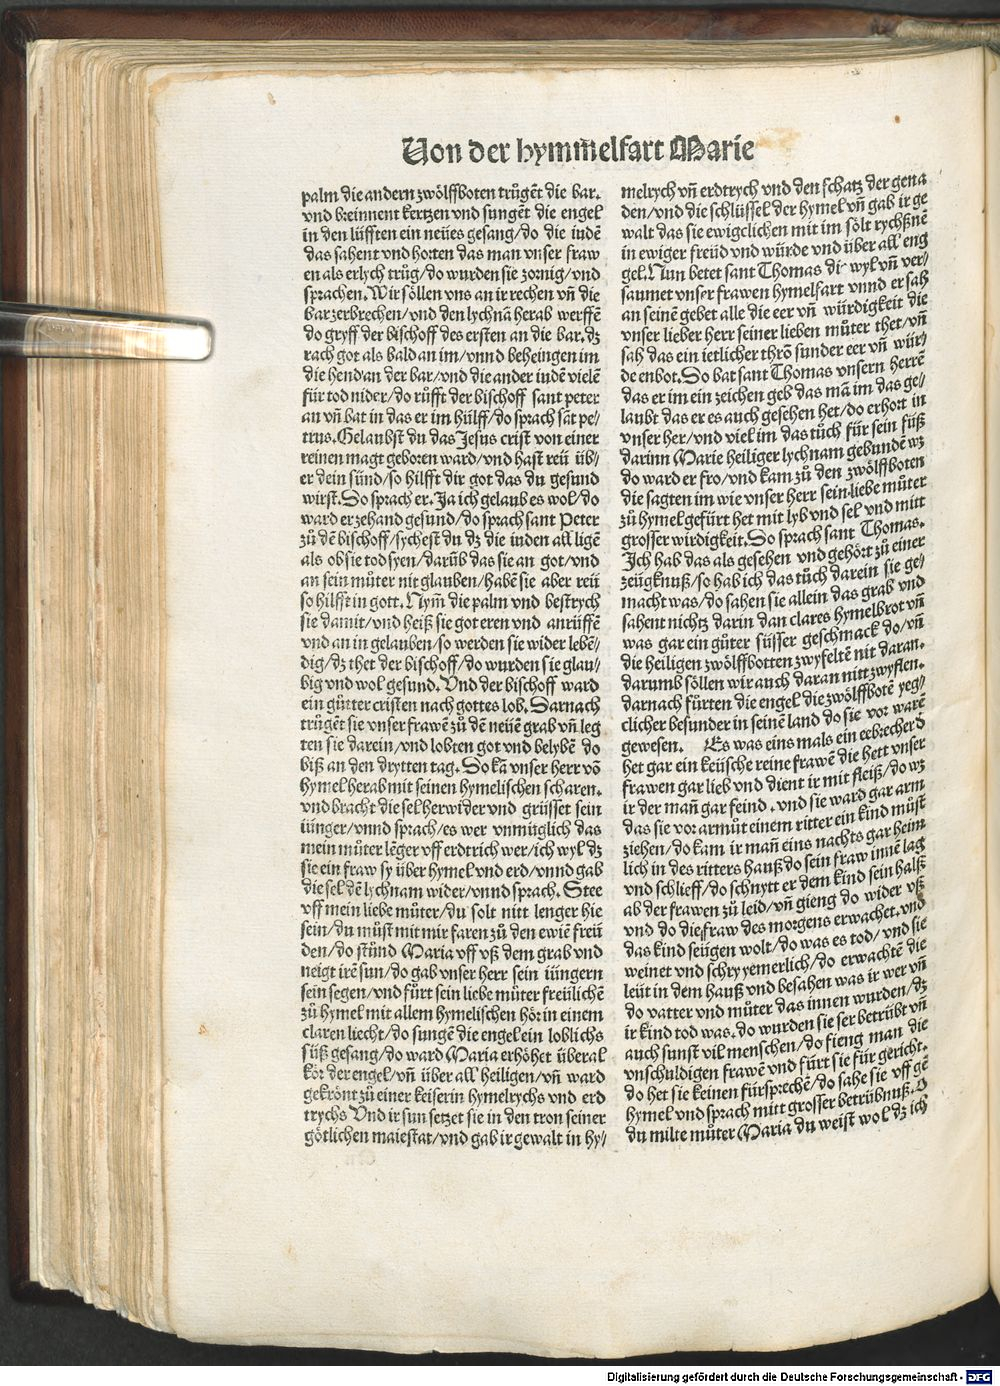 Von der hymmelfart Marie
palm die andern zwölffboten trůgẽt die bar.
vnd breinnent kertzen vnd sungẽt die engel
in den lüfften ein neües gesang/do die iudẽ
das sahent vnd horten das man vnser fraw
en als erlych trůg/do wurden sie zornig/vnd
sprachen. Wir söllen vns an ir rechen vñ die
bar zerbrechen/vnd den lychnã herab werffẽ
do gryff der bischoff des ersten an die bar. dz
rach got als bald an im/vnnd beheingen im
die hend an der bar/vnd die ander iudẽ vielẽ
für tod nider/do růfft der bischoff sant peter
an vñ bat in das er im hülff/do sprach sãt pe/
trus. Gelaubst du das Jesus crist von einer
reinen magt geboren ward/vnd hast reü üb/
er dein sünd/so hilfft dir got das du gesund
wirst. So sprach er. Ja ich gelaub es wol/do
ward er zehand gesund/do sprach sant Peter
zů dẽ bischoff/sychest du dz die iuden all ligẽ
als ob sie tod syen/darũb das sie an got/vnd
an sein můter nit glauben/habẽ sie aber reü
so hilfft in gott. Nym̃ die palm vnd bestrych
sie damit/vnd heiß sie got eren vnd anrüffẽ
vnd an in gelauben/so werden sie wider lebẽ/
dig/dz thet der bischoff/do wurden sie glau/
big vnd wol gesund. Vnd der bischoff ward
ein gůtter cristen nach gottes lob. Darnach
trůgẽt sie vnser frawẽ zů dẽ neüẽ grab vñ leg
ten sie darein/vnd lobten got vnd belybẽ do
biß an den drytten tag. So kã vnser herr võ
hymel herab mit seinen hymelischen scharen.
vnd bracht die sel herwider vnd grüsset sein
iünger/vnnd sprach/es wer vnmüglich das
mein můter lẽger vff erdtrich wer/ich wyl dz
sie ein fraw sy über hymel vnd erd/vnnd gab
die sel dẽ lychnam wider/vnnd sprach. Stee
vff mein liebe můter/du solt nitt lenger hie
sein/du můst mit mir faren zů den ewiẽ freü
den/do stůnd Maria vff vß dem grab vnd
neigt irẽ sun/do gab vnser herr sein iüngern
sein segen/vnd fürt sein liebe můter freülichẽ
zů hymel mit allem hymelischen hör in einem
claren liecht/do sungẽ die engel ein loblichs
süß gesang/do ward Maria erhöhet über al
kör der engel/vñ über all heiligen/vñ ward
gekrönt zů einer keiserin hymelrychs vnd erd
trychs Vnd ir sun setzet sie in den tron seiner
götlichen maiestat/vnd gab ir gewalt in hy/
melrych vñ erdtrych vnd den schatz der gena
den/vnd die schlüssel der hymel vñ gab ir ge
walt das sie ewigclichen mit im sölt rychßnẽ
in ewiger freüd vnd würde vnd über all eng
gel. Nun betet sant Thomas die wyl vñ ver/
saumet vnser frawen hymelfart vnnd er sah
an seinẽ gebet alle die eer vñ würdigkeit die
vnser lieber herr seiner lieben můter thet/vñ
sah das ein ietlicher thrõ sunder eer vñ wür/
de enbot. So bat sant Thomas vnsern herrẽ
das er im ein zeichen geb das mã im das ge/
laubt das er es auch gesehen het/do erhort in
vnser her/vnd viel im das tůch für sein füß
darinn Marie heiliger lychnam gebundẽ wz
do ward er fro/vnd kam zů den zwölffboten
die sagten im wie vnser herr sein liebe můter
zů hymel gefürt het mit lyb vnd sel vnd mitt
grosser wirdigkeit. So sprach sant Thomas.
Ich hab das als gesehen vnd gehört zů einer
zeügknuß/so hab ich das tůch darein sie ge/
macht was/do sahen sie allein das grab vnd
sahent nichtz darin dan clares hymelbrot vñ
was gar ein gůter süsser geschmack do/vñ
die heiligen zwölffbotten zwyfeltẽ nit daran.
darumb söllen wir auch daran nitt zwyflen.
darnach fürten die engel die zwölffbotẽ yeg/
clicher besunder in seinẽ land do sie vor warẽ
gewesen. Es was eins mals ein eebrecher d
het gar ein keüsche reine frawẽ die hett vnser
frawen gar lieb vnd dient ir mit fleiß/do wz
ir der mañ gar feind. vnd sie ward gar arm
das sie vor armůt einem ritter ein kind můst
ziehen/do kam ir mañ eins nachts gar heim
lich in des ritters hauß do sein fraw innẽ lag
vnd schlieff/do schnytt er dem kind sein halß
ab der frawen zů leid/vñ gieng do wider vß
vnd do die fraw des morgens erwachet. vnd
das kind seügen wolt/do was es tod/vnd sie
weinet vnd schry yemerlich/do erwachtẽ die
leüt in dem hauß vnd besahen was ir wer vñ
do vatter vnd můter das innen wurden/dz
ir kind tod was. do wurden sie ser betrübt vñ
auch sunst vil menschen/do fieng man die
vnschuldigen frawẽ vnd fürt sie für gericht.
do het sie keinen fürsprechẽ/do sahe sie vff gẽ
hymel vnd sprach mitt grosser betrübnuß. O
du milte můter Maria du weist wol dz ich
Digitalisierung gefördert durch die Deutsche Forschungsgemeinschaft - DFG